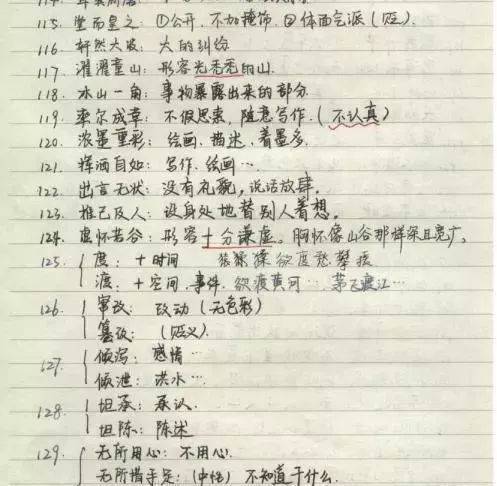 115. 堂而皇之：①公开，不加掩饰 ②体面气派（贬）
116. 轩然大波：大的纠纷
117. 濯濯童山：形容光秃秃的山.
118. 冰山一角：事物暴露出来的部分
119. 率尔成章：不假思索，随意写作.（不认真）
120. 浓墨重彩：绘画、描述，着墨多.
121. 挥洒自如：写作、绘画…
122. 出言无状：没有礼貌，说话放肆.
123. 推己及人：设身处地替别人着想.
124. 虚怀若谷：形容十分谦虚。胸怀像山谷那样深且宽广。
125. 度：+时间 猿猱欲度愁攀援
渡：+空间、事件 欲渡黄河… 渡江…
126. 窜改：改动（无色彩）
篡改：（贬义）
127. 倾泻：感情…
倾泄：洪水…
128. 坦承：承认.
坦陈：陈述
129. 无所用心：不用心.
无所措手足：（中性）不知道干什么.